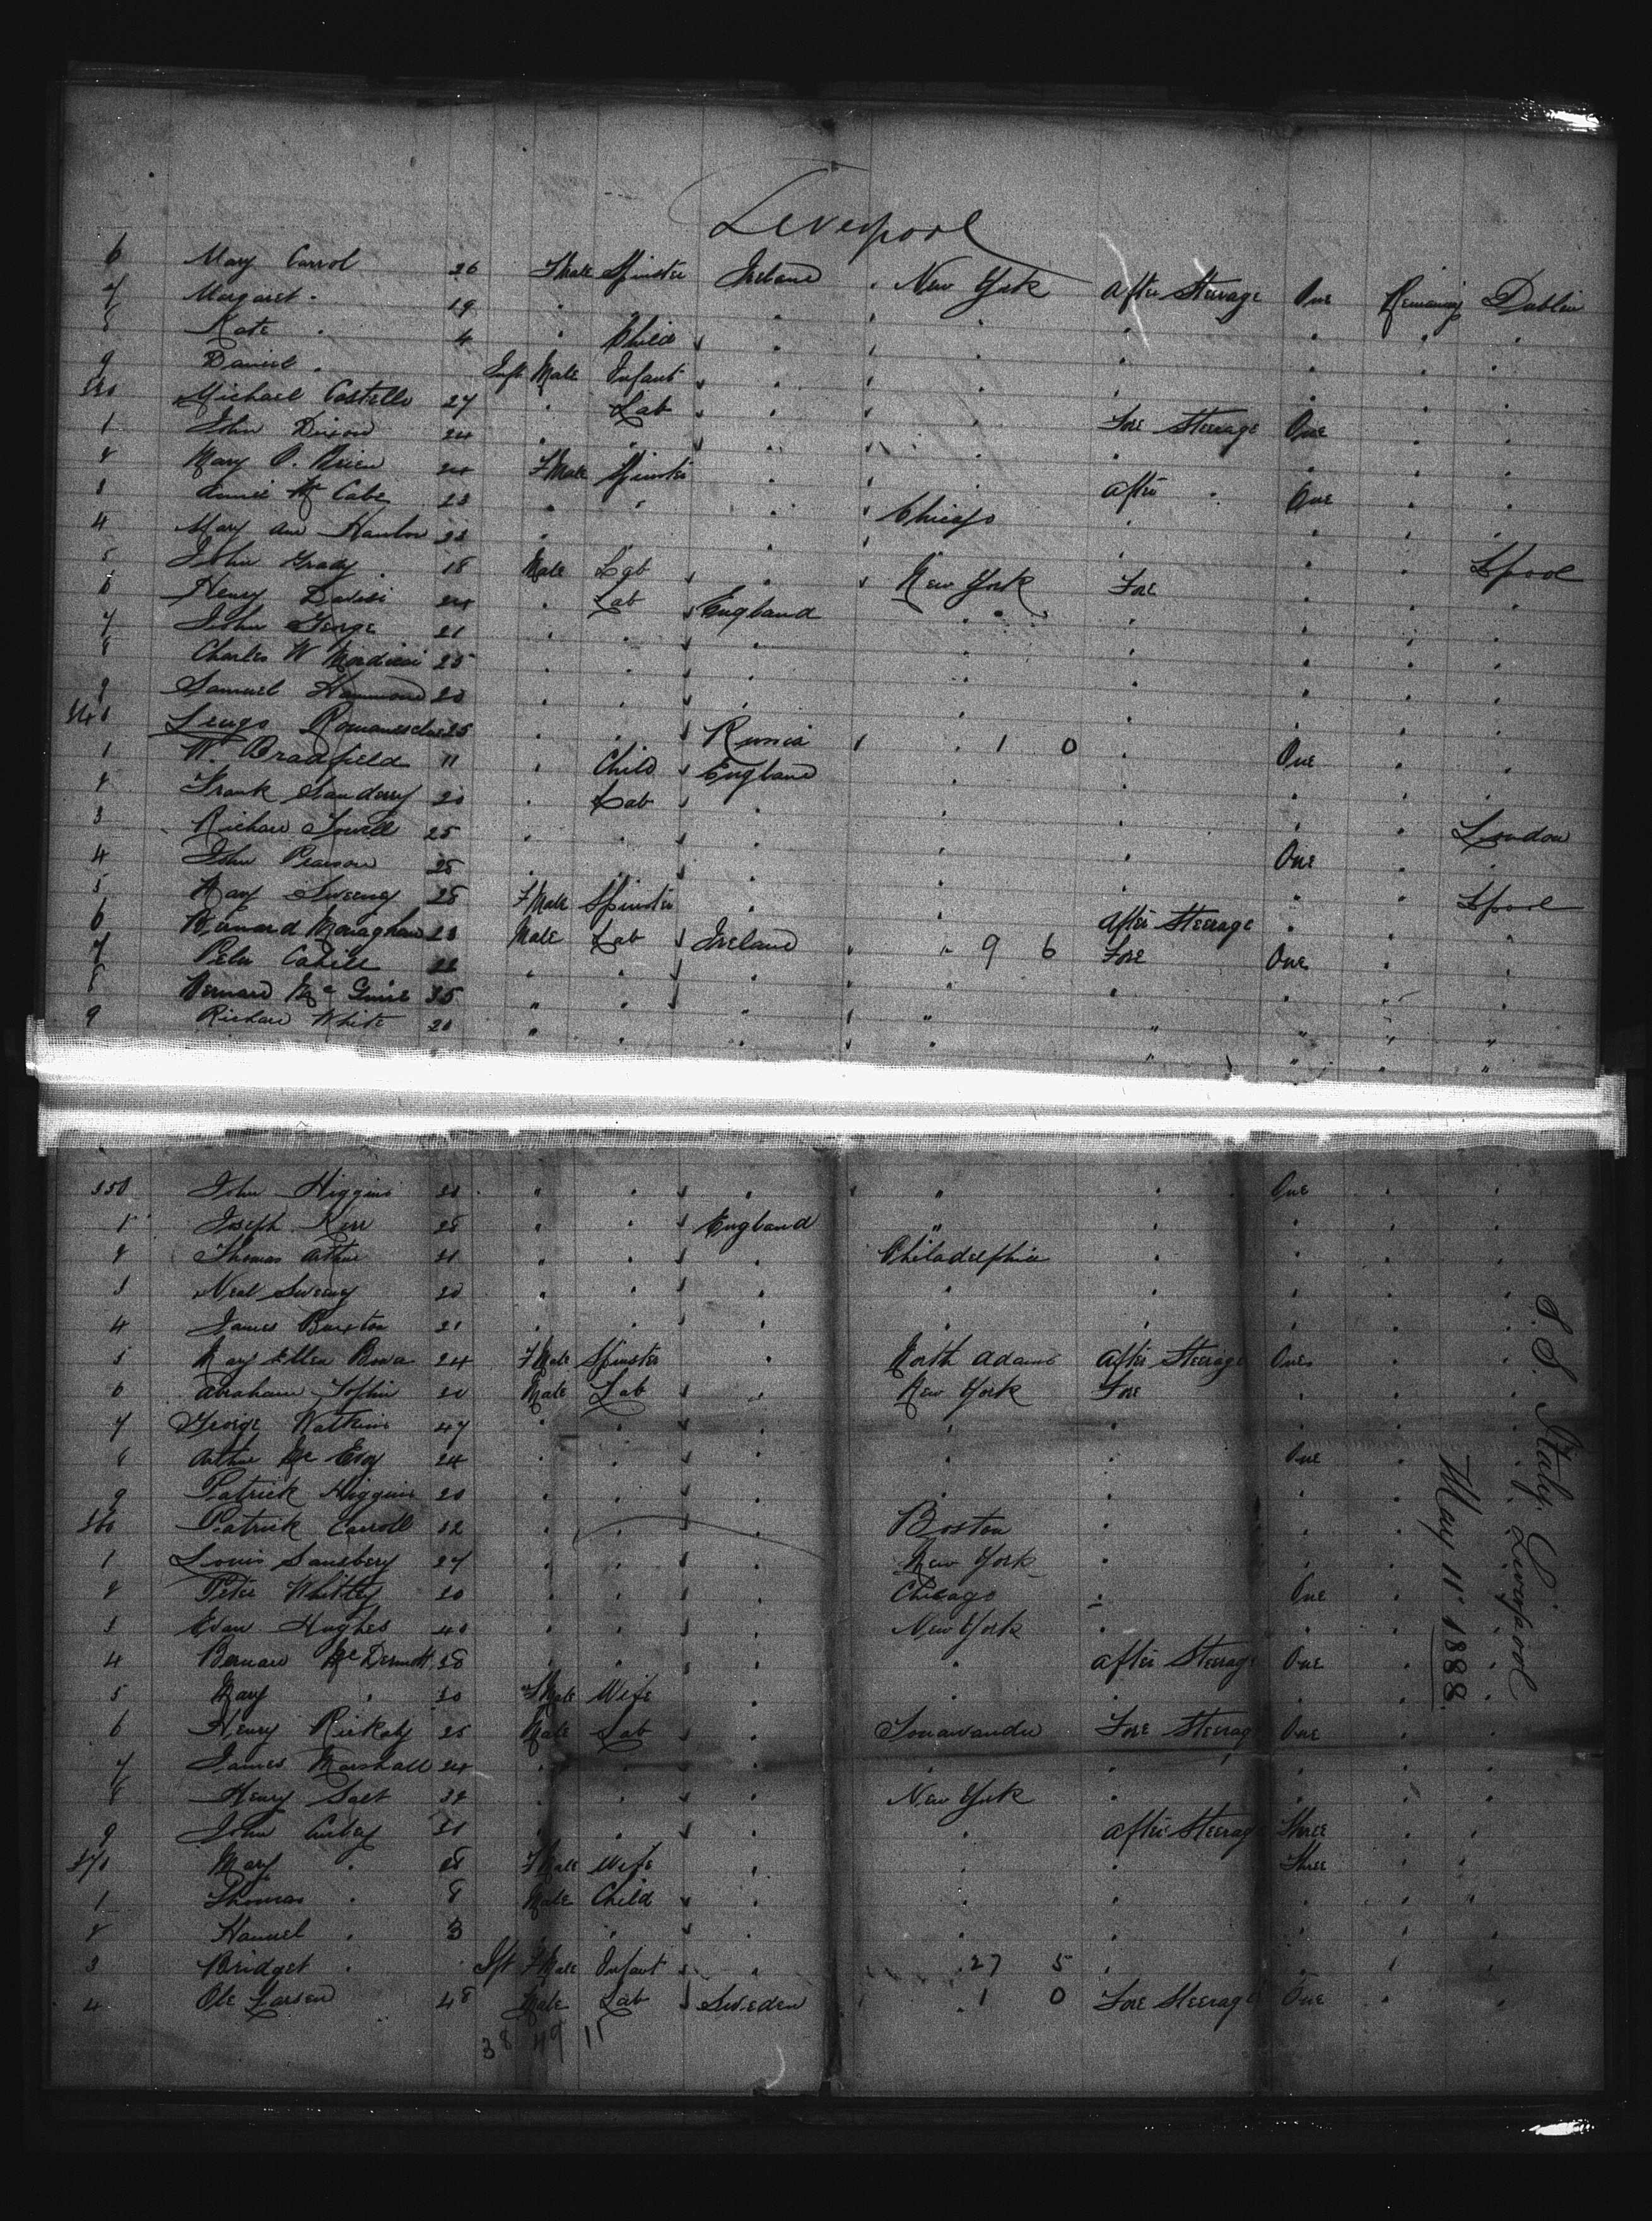 Liverpool
6 Mary Carrol 26 FMale Spinster Ireland New York After Steerage One Remaining Dublin
7 Margaret " 19 " " " " " " " "
8 Kate " 4 " Child " " " " " "
9 Daniel " Inft Male Infant " " " " " "
Michael Costello 27 " Lab " " Fore Steerage One " "
1 John Dixon 24 " " " " " " " "
2 Mary O. Brien 24 FMale Spinster " " After " One " "
3 Annie Mc Cabe 23 " " " Chicago " " " "
4 Mary Ann Hanlon 23 " " " " " " " L'pool
5 John Grady 18 Male Lab " New York Fore " " "
6 Henry 24 " Lab England " " " " "
7 John George 21 " " " " " " " "
8 Charles W 25 " " " " " " " "
9 Samuel Hammond 20 " " " " " " " "
340 25 " " Russia 1 0 " One " "
1 W. Bradfield 11 " Child England " " " " "
2 Frank 20 " Lab " " " " " London
3 Richard 25 " " " " " One "
4 John Pearson 25 " " " " " " " L'pool
5 Mary Sweeney 28 FMale Spinster " " After Steerage " " "
6 Bernard Monaghan 23 Male Lab Ireland " 9 6 Fore One " "
7 Peter Cahill 22 " " " " " " " "
8 Bernard Mc Guire 35 " " " " " " " "
9 Richard White 20 " " " " " " " "
350 John Higgins " " " " " One " "
1 Joseph Kerr 28 " " England " " " " "
2 Thomas Arthur " " " Philadelphia " " " "
3 Neal Sweeny 20 " " " " " " " "
4 James Buxton 21 " " " " " " " "
5 Mary Ellen 24 FMale Spinster " North Adams After Steerage One " "
6 Abraham Male Lab " New York Fore " " "
7 George Watkins 47 " " " " " " " "
8 Arthur Mc Evoy 24 " " " " " One " "
9 Patrick Higgins 20 " " " " " " " "
360 Patrick Carroll 32 " " " Boston " " " "
1 Louis Sansbery 27 " " " New York " " " "
2 Peter Whitley 20 " " " Chicago " One " "
3 Evan Hughes 40 " " " New York " " " "
4 Bernard Mc Dermott 38 " " " " After Steerage One " "
5 Mary " 30 FMale Wife " " " " " "
6 Henry Rickaby 25 Male Lab " Tonawanda Fore Steerage One " "
7 James Marshall 24 " " " " " " " "
8 Henry Salt 32 " " " New York " " " "
9 John " " " " After Steerage Three " "
370 Mary " 28 FMale Wife " " " Three " "
1 Thomas " 8 Male Child " " " " " "
2 " 3 " " " " " " " "
3 Bridget " Ift FMale Infant " 27 5 " " " "
4 Ole Larsen 48 Male Lab Sweden 1 0 Fore Steerage One " "
38 49 11
S.S. Italy. Liverpool
May 11" 1888.